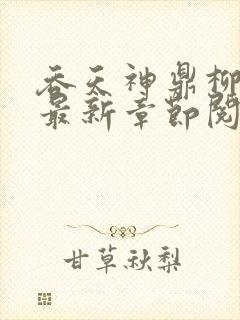 吞天神鼎柳
最新章节阅
甘草秋梨